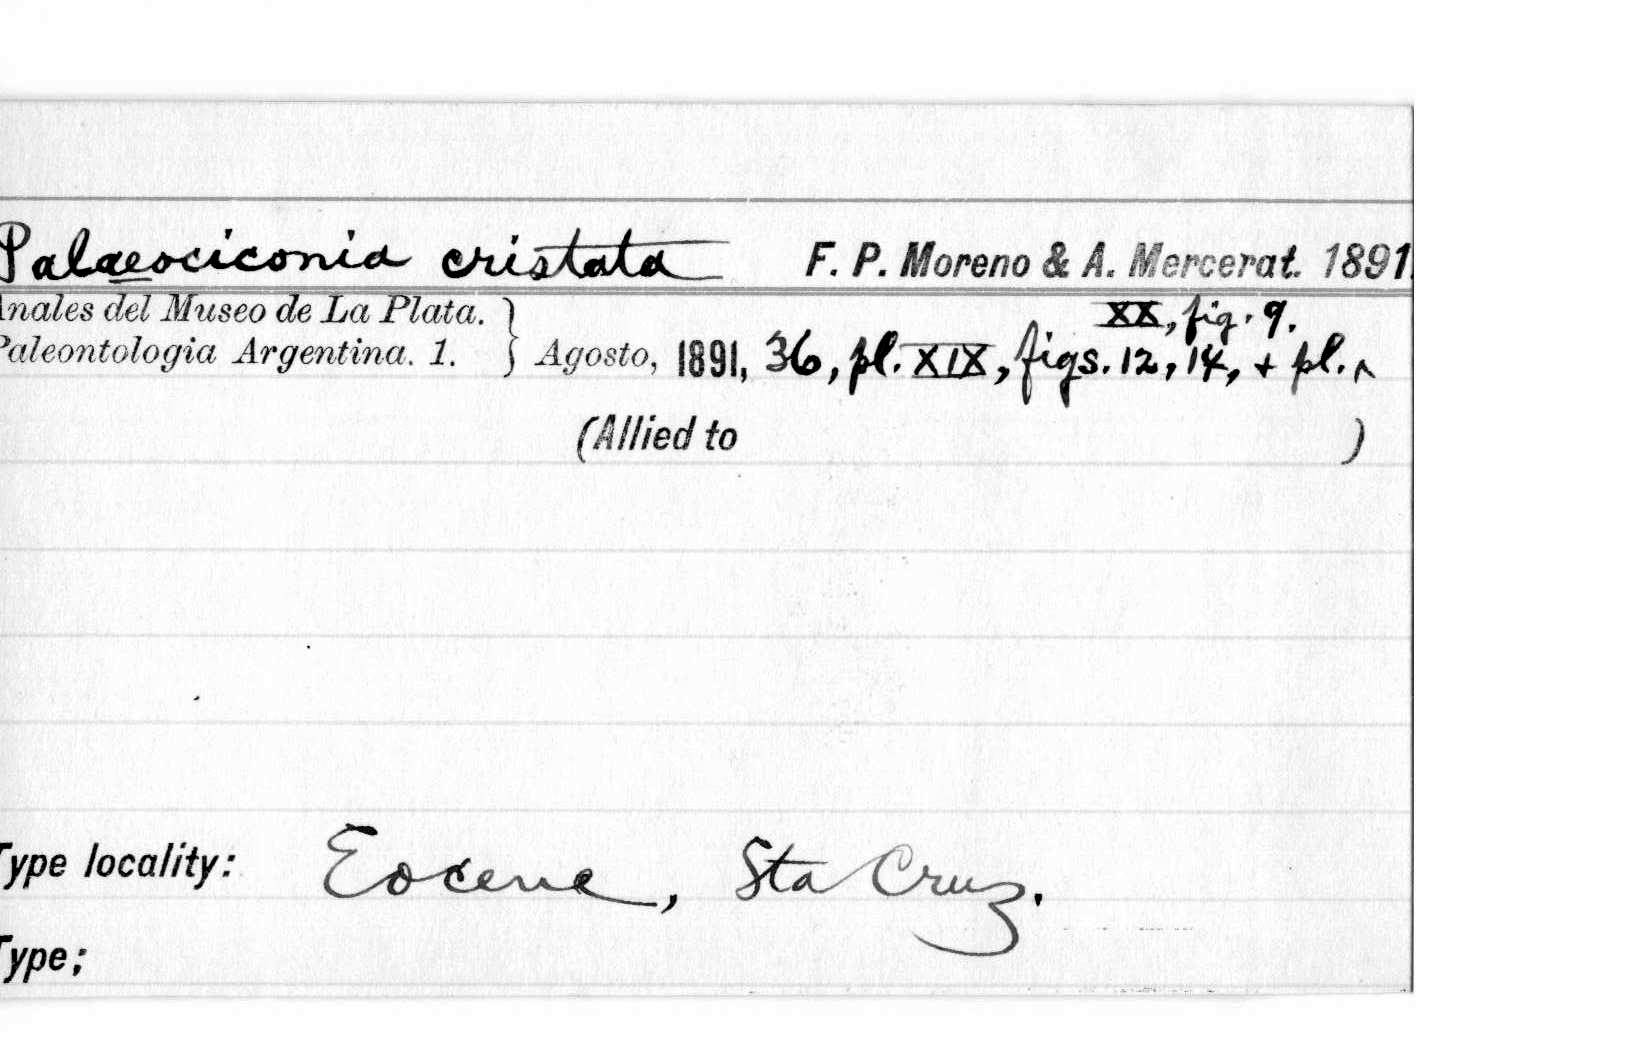 Palaeociconia cristata F. P. Moreno & A. Mercerat. 1891.
Anales del Museo de La Plata. }
XX, fig. 9.
Paleontologia Argentina. 1. } Agosto, 1891, 36, pl. XIX, figs. 12, 14, + pl. ^
(Allied to )
Type locality: Eocene, Sta Cruz.
Type;